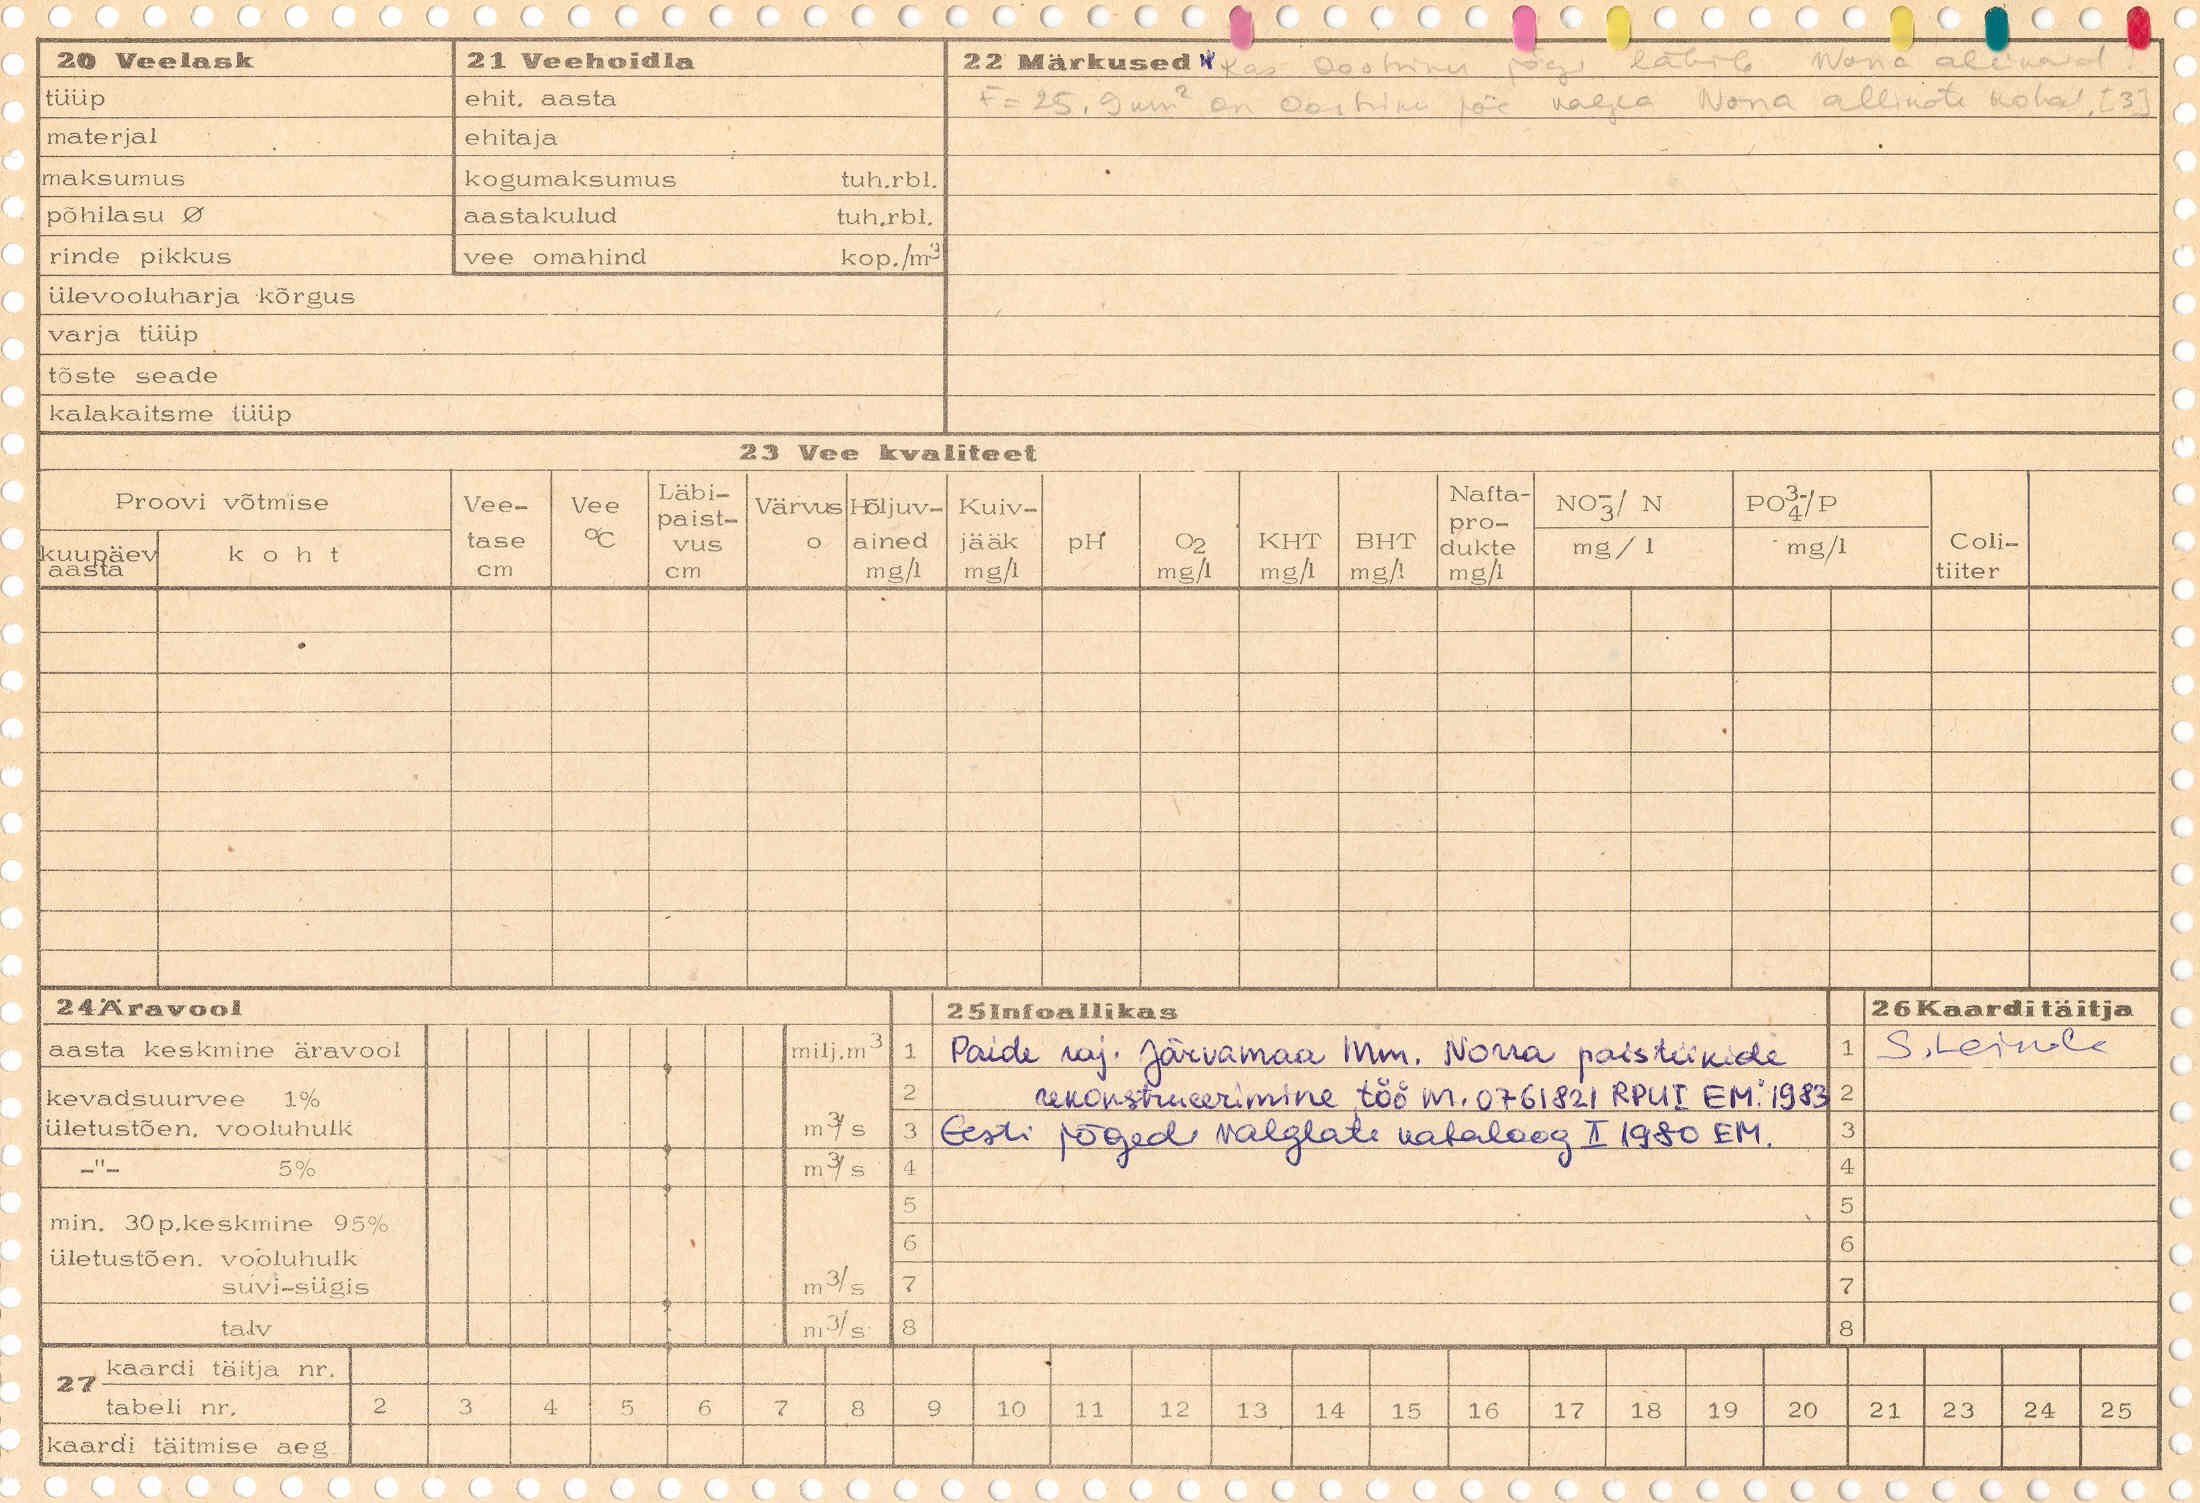 20 Veelask
tüüp
materjal
maksumus
põhilasu Ø
rinde pikkus
ülevooluharja kõrgus
varja tüüp
tõste seade
kalakaitsme tüüp
21 Veehoidla
ehit. aasta
ehitaja
kogumaksumus tuh.rbl.
aastakulud tuh.rbl.
vee omahind kop./m³
22 Märkused * Kas Oostriku jõgi läbib Norra allikaid?
F = 25,9 km² on Oostriku jõe valgla Norra allikate kohal. [3]
23 Vee kvaliteet
Proovi võtmise
kuupäev aasta
koht
Vee-
tase
cm
Vee
°C
Läbi-
paist-
vus
cm
Värvus
o
Hõljuv-
ained
mg/l
Kuiv-
jääk
mg/l
pH
O2
mg/l
KHT
mg/l
BHT
mg/l
Nafta-
pro-
dukte
mg/l
NO₃⁻/ N
mg/l
PO₄³⁻/P
mg/l
Coli-
tiiter
24 Äravool
aasta keskmine äravool milj.m³
kevadsuurvee 1%
ületustõen. vooluhulk m³/s
-"- 5% m³/s
min. 30p.keskmine 95%
ületustõen. vooluhulk
suvi-sügis m³/s
talv m³/s
25 Infoallikas
1 Paide raj. Järvamaa Mm. Norra paistiikide
2 rekonstrueerimine töö nr. 0761821 RPUI EM. 1983
3 Eesti jõgede valglate kataloog II 1980 EM.
4
5
6
7
8
26 Kaarditäitja
1
2
3
4
5
6
7
8
27 kaardi täitja nr.
tabeli nr. 2 3 4 5 6 7 8 9 10 11 12 13 14 15 16 17 18 19 20 21 23 24 25
kaardi täitmise aeg